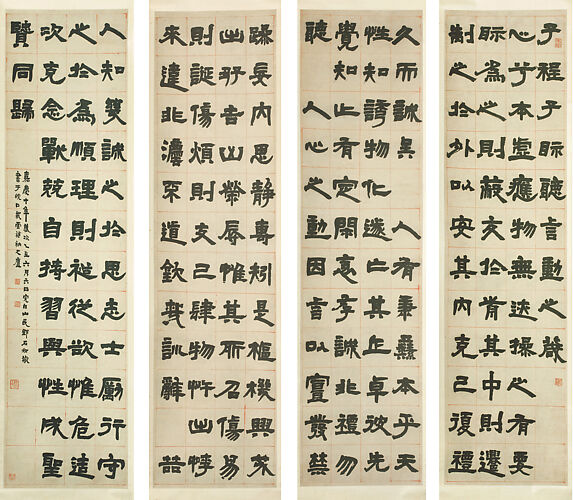 子程子眎聽言動之箴
心兮本虛應物無迹操之有要
眎為之則蔽交於前其中則遷
制之於外以安其內克己復禮
久而誠矣 人有秉彝本乎天
性知誘物化遂亡其正卓彼先
覺知止有定閑邪存誠非禮勿
聽 人心之動因言以宣發禁
躁妄內思靜專矧是樞機興戎
出好吉凶榮辱惟其所召傷易
則誕傷煩則支己肆物忤出悖
來違非灋不道欽哉訓辭 喆
人知幾誠之於思志士厲行守
之於為順理則裕從欲惟危造
次克念戰兢自持習與性成聖
賢同歸
嘉慶十年歲次乙丑六月六日完白山民鄧石如敬